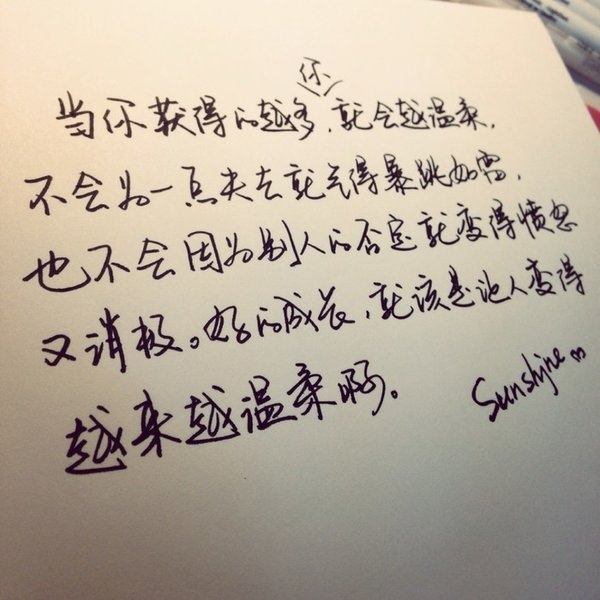 当你获得的越多,你就会越温柔,
不会为一点失去就气得暴跳如雷,
也不会因为别人的否定就变得愤怒
又消极。好的成长,就该是让人变得
越来越温柔啊。
Sunshine